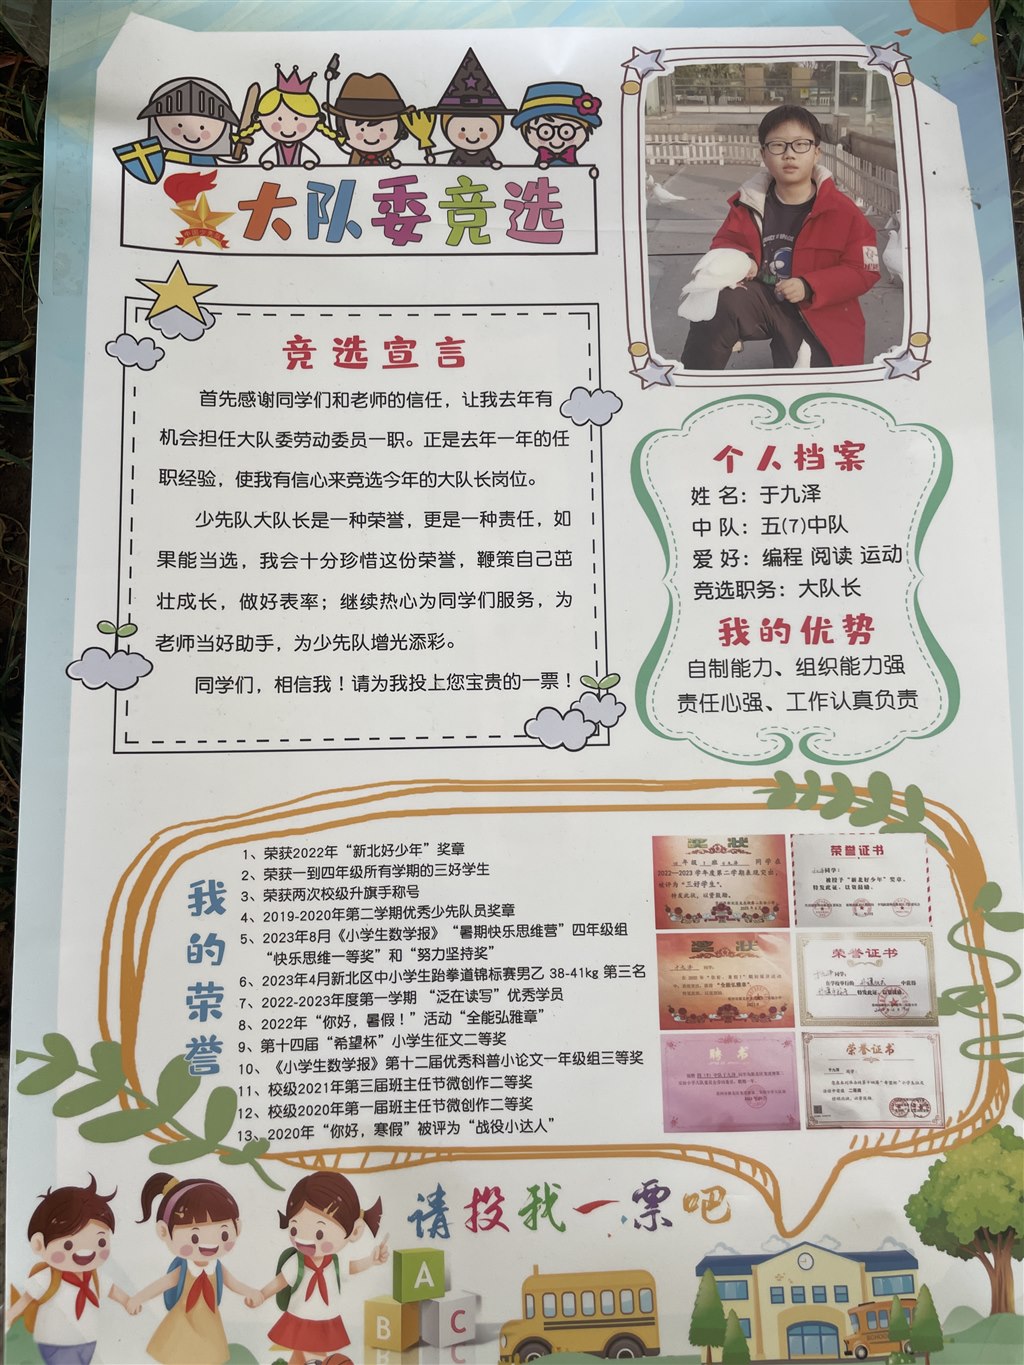 大队委竞选
竞选宣言
首先感谢同学们和老师的信任，让我去年有
机会担任大队委劳动委员一职。正是去年一年的任
职经验，使我有信心来竞选今年的大队长岗位。
少先队大队长是一种荣誉，更是一种责任，如
果能当选，我会十分珍惜这份荣誉，鞭策自己茁
壮成长，做好表率；继续热心为同学们服务，为
老师当好助手，为少先队增光添彩。
同学们，相信我！请为我投上您宝贵的一票！
个人档案
姓 名：于九泽
中 队：五(7)中队
爱 好：编程 阅读 运动
竞选职务：大队长
我的优势
自制能力、组织能力强
责任心强、工作认真负责
我的荣誉
1、荣获2022年“新北好少年”奖章
2、荣获一到四年级所有学期的三好学生
3、荣获两次校级升旗手称号
4、2019-2020年第二学期优秀少先队员奖章
5、2023年8月《小学生数学报》“暑期快乐思维营”四年级组
“快乐思维一等奖”和“努力坚持奖”
6、2023年4月新北区中小学生跆拳道锦标赛男乙 38-41kg 第三名
7、2022-2023年度第一学期 “泛在读写”优秀学员
8、2022年“你好，暑假！”活动“全能弘雅章”
9、第十四届“希望杯”小学生征文二等奖
10、《小学生数学报》第十二届优秀科普小论文一年级组三等奖
11、校级2021年第三届班主任节微创作二等奖
12、校级2020年第一届班主任节微创作二等奖
13、2020年“你好，寒假”被评为“战役小达人”
奖 状
同学在
2022—2023学年度第二学期表现突出，
被评为“三好学生”。
特发此状，以资鼓励。
荣誉证书
同学：
被授予“新北好少年”奖章，
特发此证，以资鼓励。
奖 状
“全能弘雅章”
荣誉证书
特发此证，以资鼓励。
聘 书
荣誉证书
请投我一票吧
A
B
C
SCHOOL